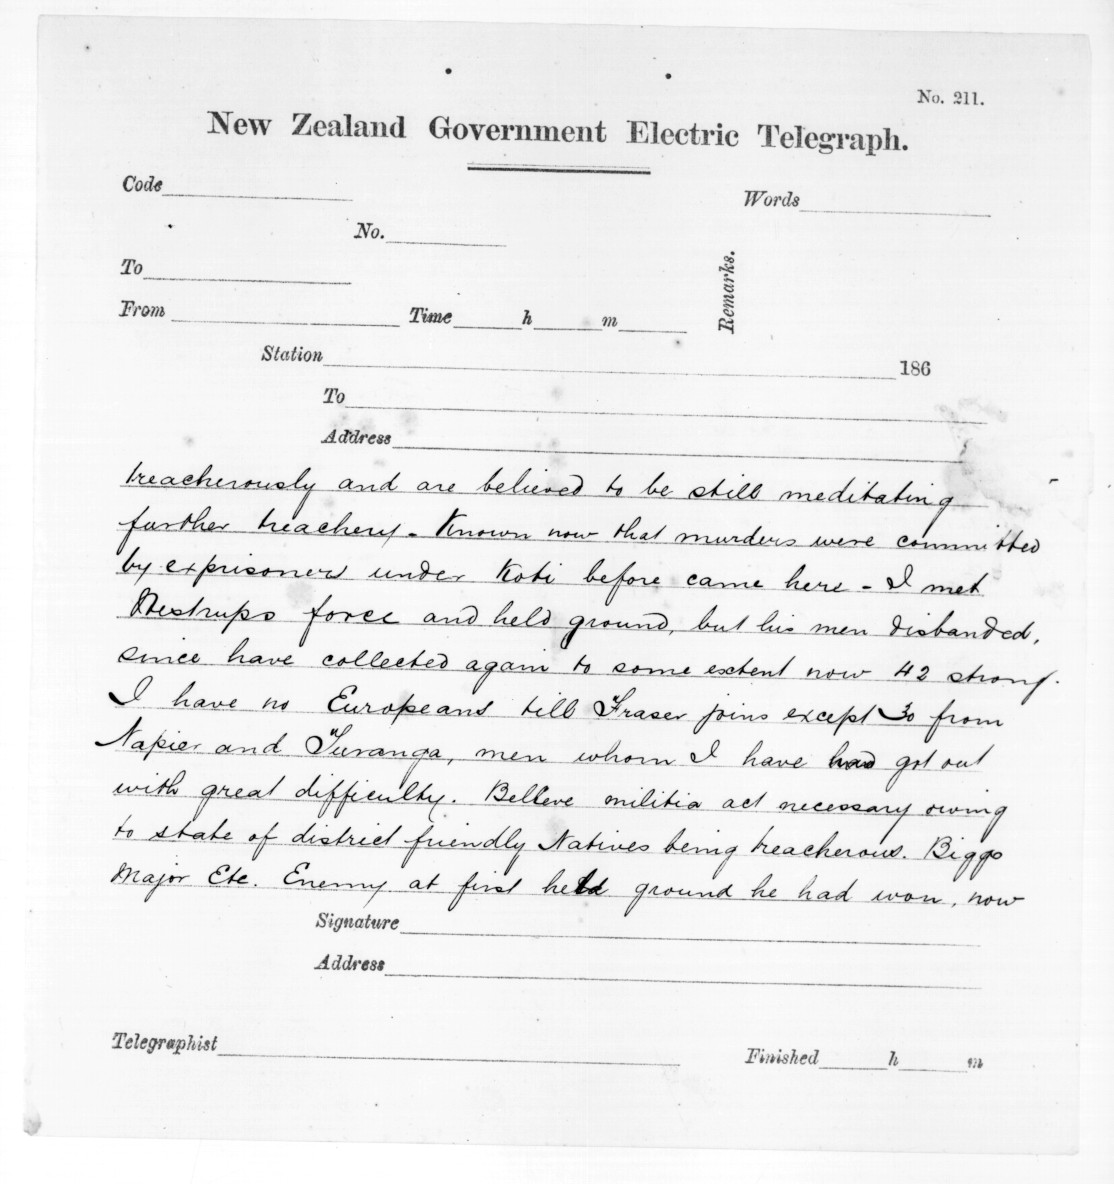 No. 211.
New Zealand Government Electric Telegraph.
Code
Words
No.
To
Remarks.
From Time h m
Station 186
To
Address
treacherously and are believed to be still meditating
further treachery. Known now that murders were committed
by exprisoners under Koti before came here - I met
Westrups force and held ground, but his men disbanded,
since have collected again to some extent now 42 strong.
I have no Europeans till Fraser joins except 30 from
Napier and Turanga, men whom I have had got out
with great difficulty. Believe militia act necessary owing
to state of district friendly Natives being treacherous. Biggs
Major Etc. Enemy at first held ground he had won, now
Signature
Address
Telegraphist
Finished h m